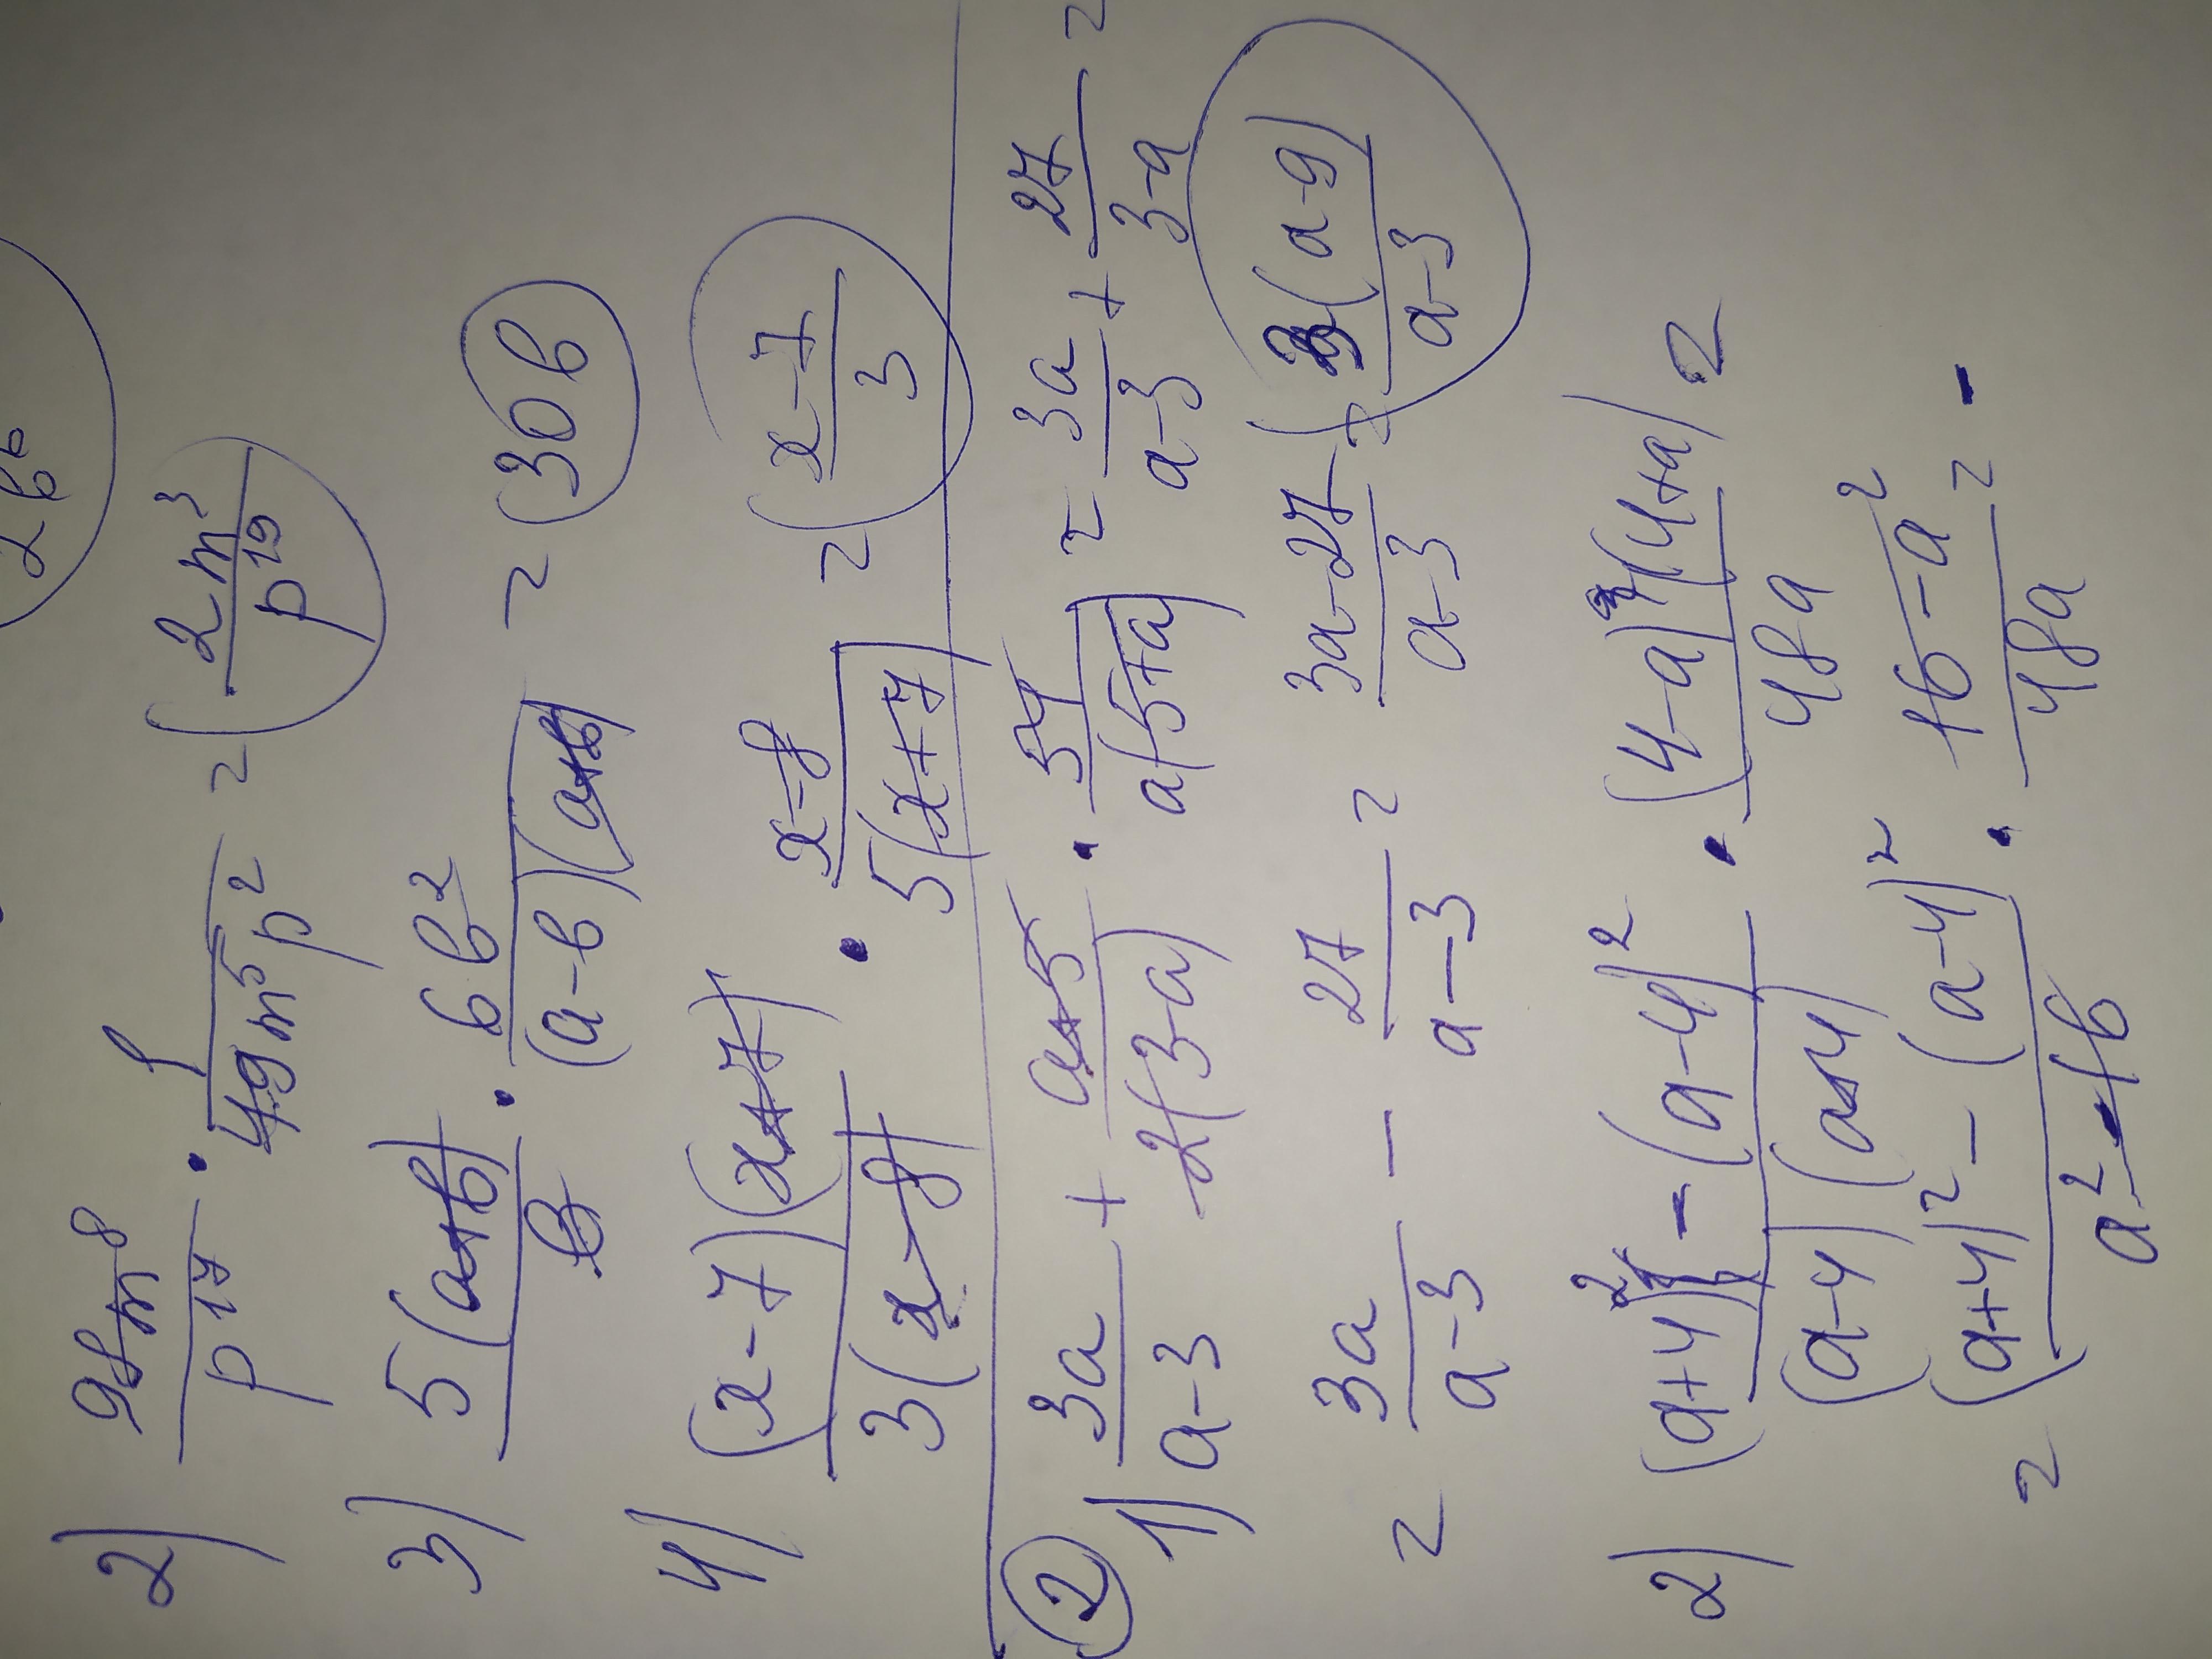 2b⁶
2) 98m⁸/p¹⁷ · 1/(49m⁵p²) = 2m³/p¹⁹
3) 5(a+b)/b · 6b²/((a-b)(a+b)) = 30b
4) (x-7)(x+7)/(3(x-8)) · (x-8)/(5(x+7)) = (x-7)/3
② 1) 3a/(a-3) + (a+5)/(2(3-a)) · 54/(a(5+a)) = 3a/(a-3) + 27/(3-a) =
= 3a/(a-3) - 27/(a-3) = (3a-27)/(a-3) = 3(a-9)/(a-3)
2) ((a+4)² - (a-4)²)/((a-4)(a+4)) · (4-a)(4+a)/48a =
= ((a+4)² - (a-4)²)/(a²-16) · (16-a²)/48a = -